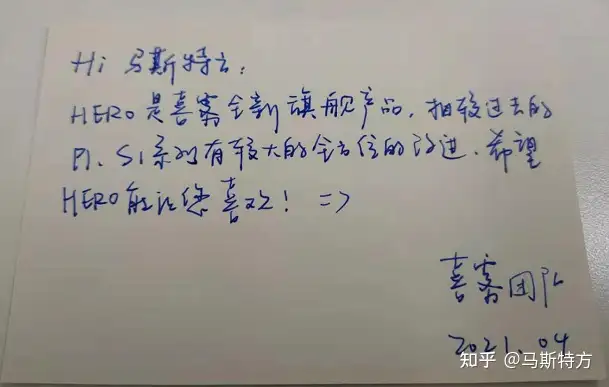 Hi 马斯特方:
HERO是喜客全新旗舰产品,相较过去的
P1、S1系列有较大的全方位的改进.希望
HERO能让您喜欢! =>
喜客团队
2021.04
知乎 @马斯特方